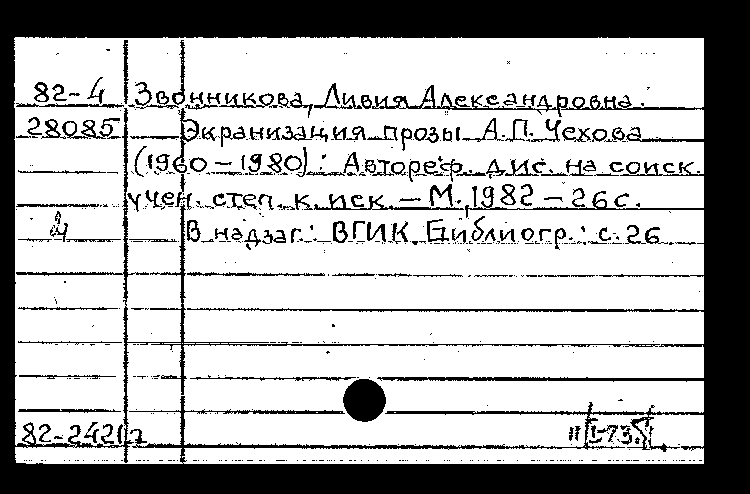 82-4 Звонникова, Ливия Александровна.
28085 Экранизация прозы А.П. Чехова
(1960-1980): Автореф. дис. на соиск.
учен. степ. к. иск. - М., 1982 - 26 с.
В надзаг.: ВГИК. Библиогр.: с. 26